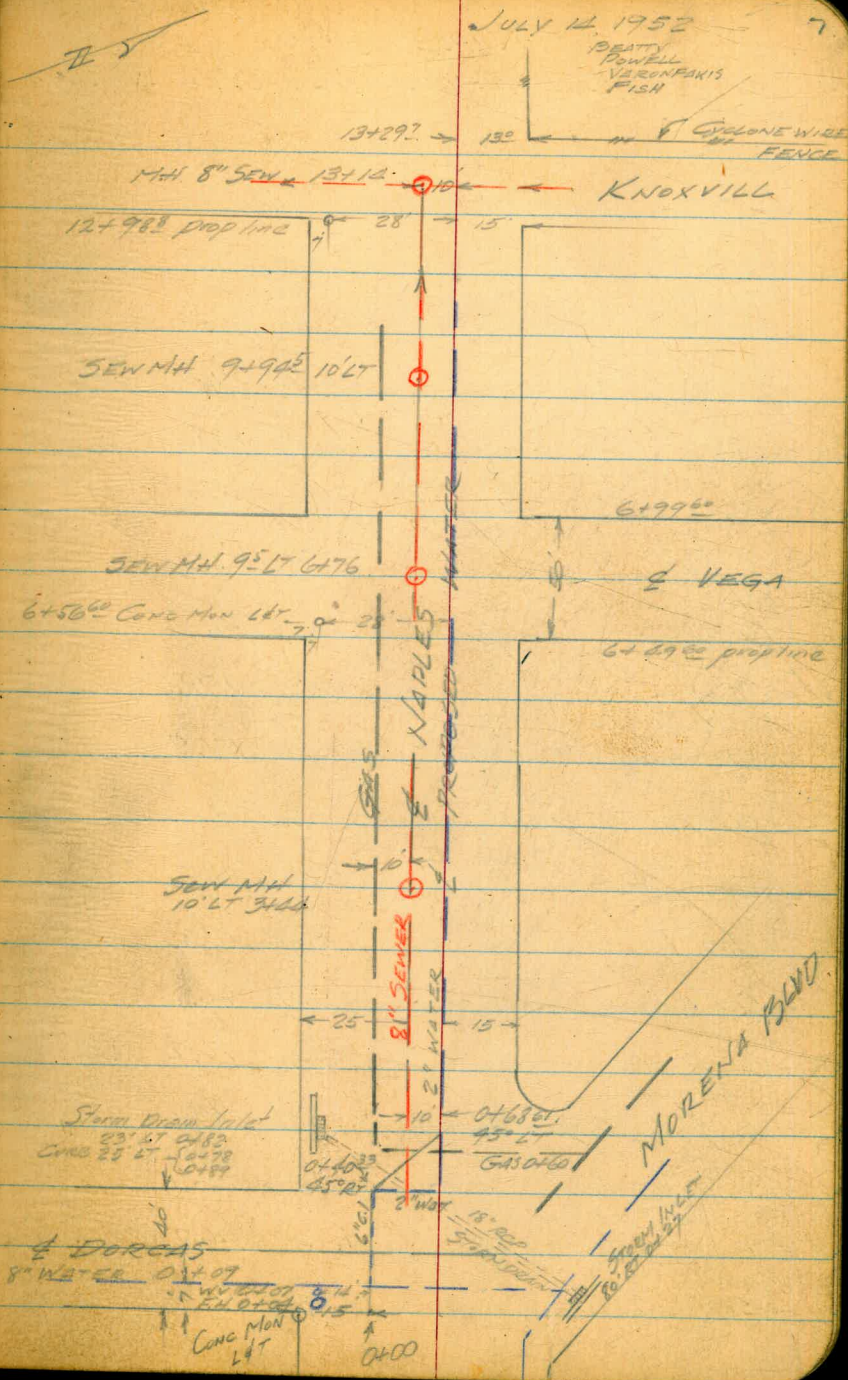 JULY 14, 1952
7
BEATTY
POWELL
VERONFAKIS
FISH
13+29⁷
13⁰
CYCLONE WIRE
FENCE
MH 8" SEW 13+14
10'
KNOXVILL
12+98⁸ prop line
28'
15'
7'
SEW MH 9+94⁵ 10' LT
6+99⁶⁰
SEW MH 9⁵ LT 6+76
50'
℄ VEGA
6+56⁶⁰ CONC MON L&T
7
28'
7
6+49⁶⁰ prop line
GAS
℄ NAPLES
PROPOSED WATER
10'
SEW MH
10' LT 3+44
8" SEWER
2" WATER
25
15
MORENA BLVD.
Storm Drain Inlet
23' LT 0+82
CURB 25' LT 0+78
0+89
10'
0+68⁶¹
45° LT
GAS 0+60
0+40³³
45° RT
2" WAT
6" C.I.
18" RCP
STORM DRAIN
STORM INLET
80' RT 0+27
40'
℄ DORCAS
8" WATER 0+09
WV 0+07
F.H. 0+04
14
15
CONC MON
L&T
0+00